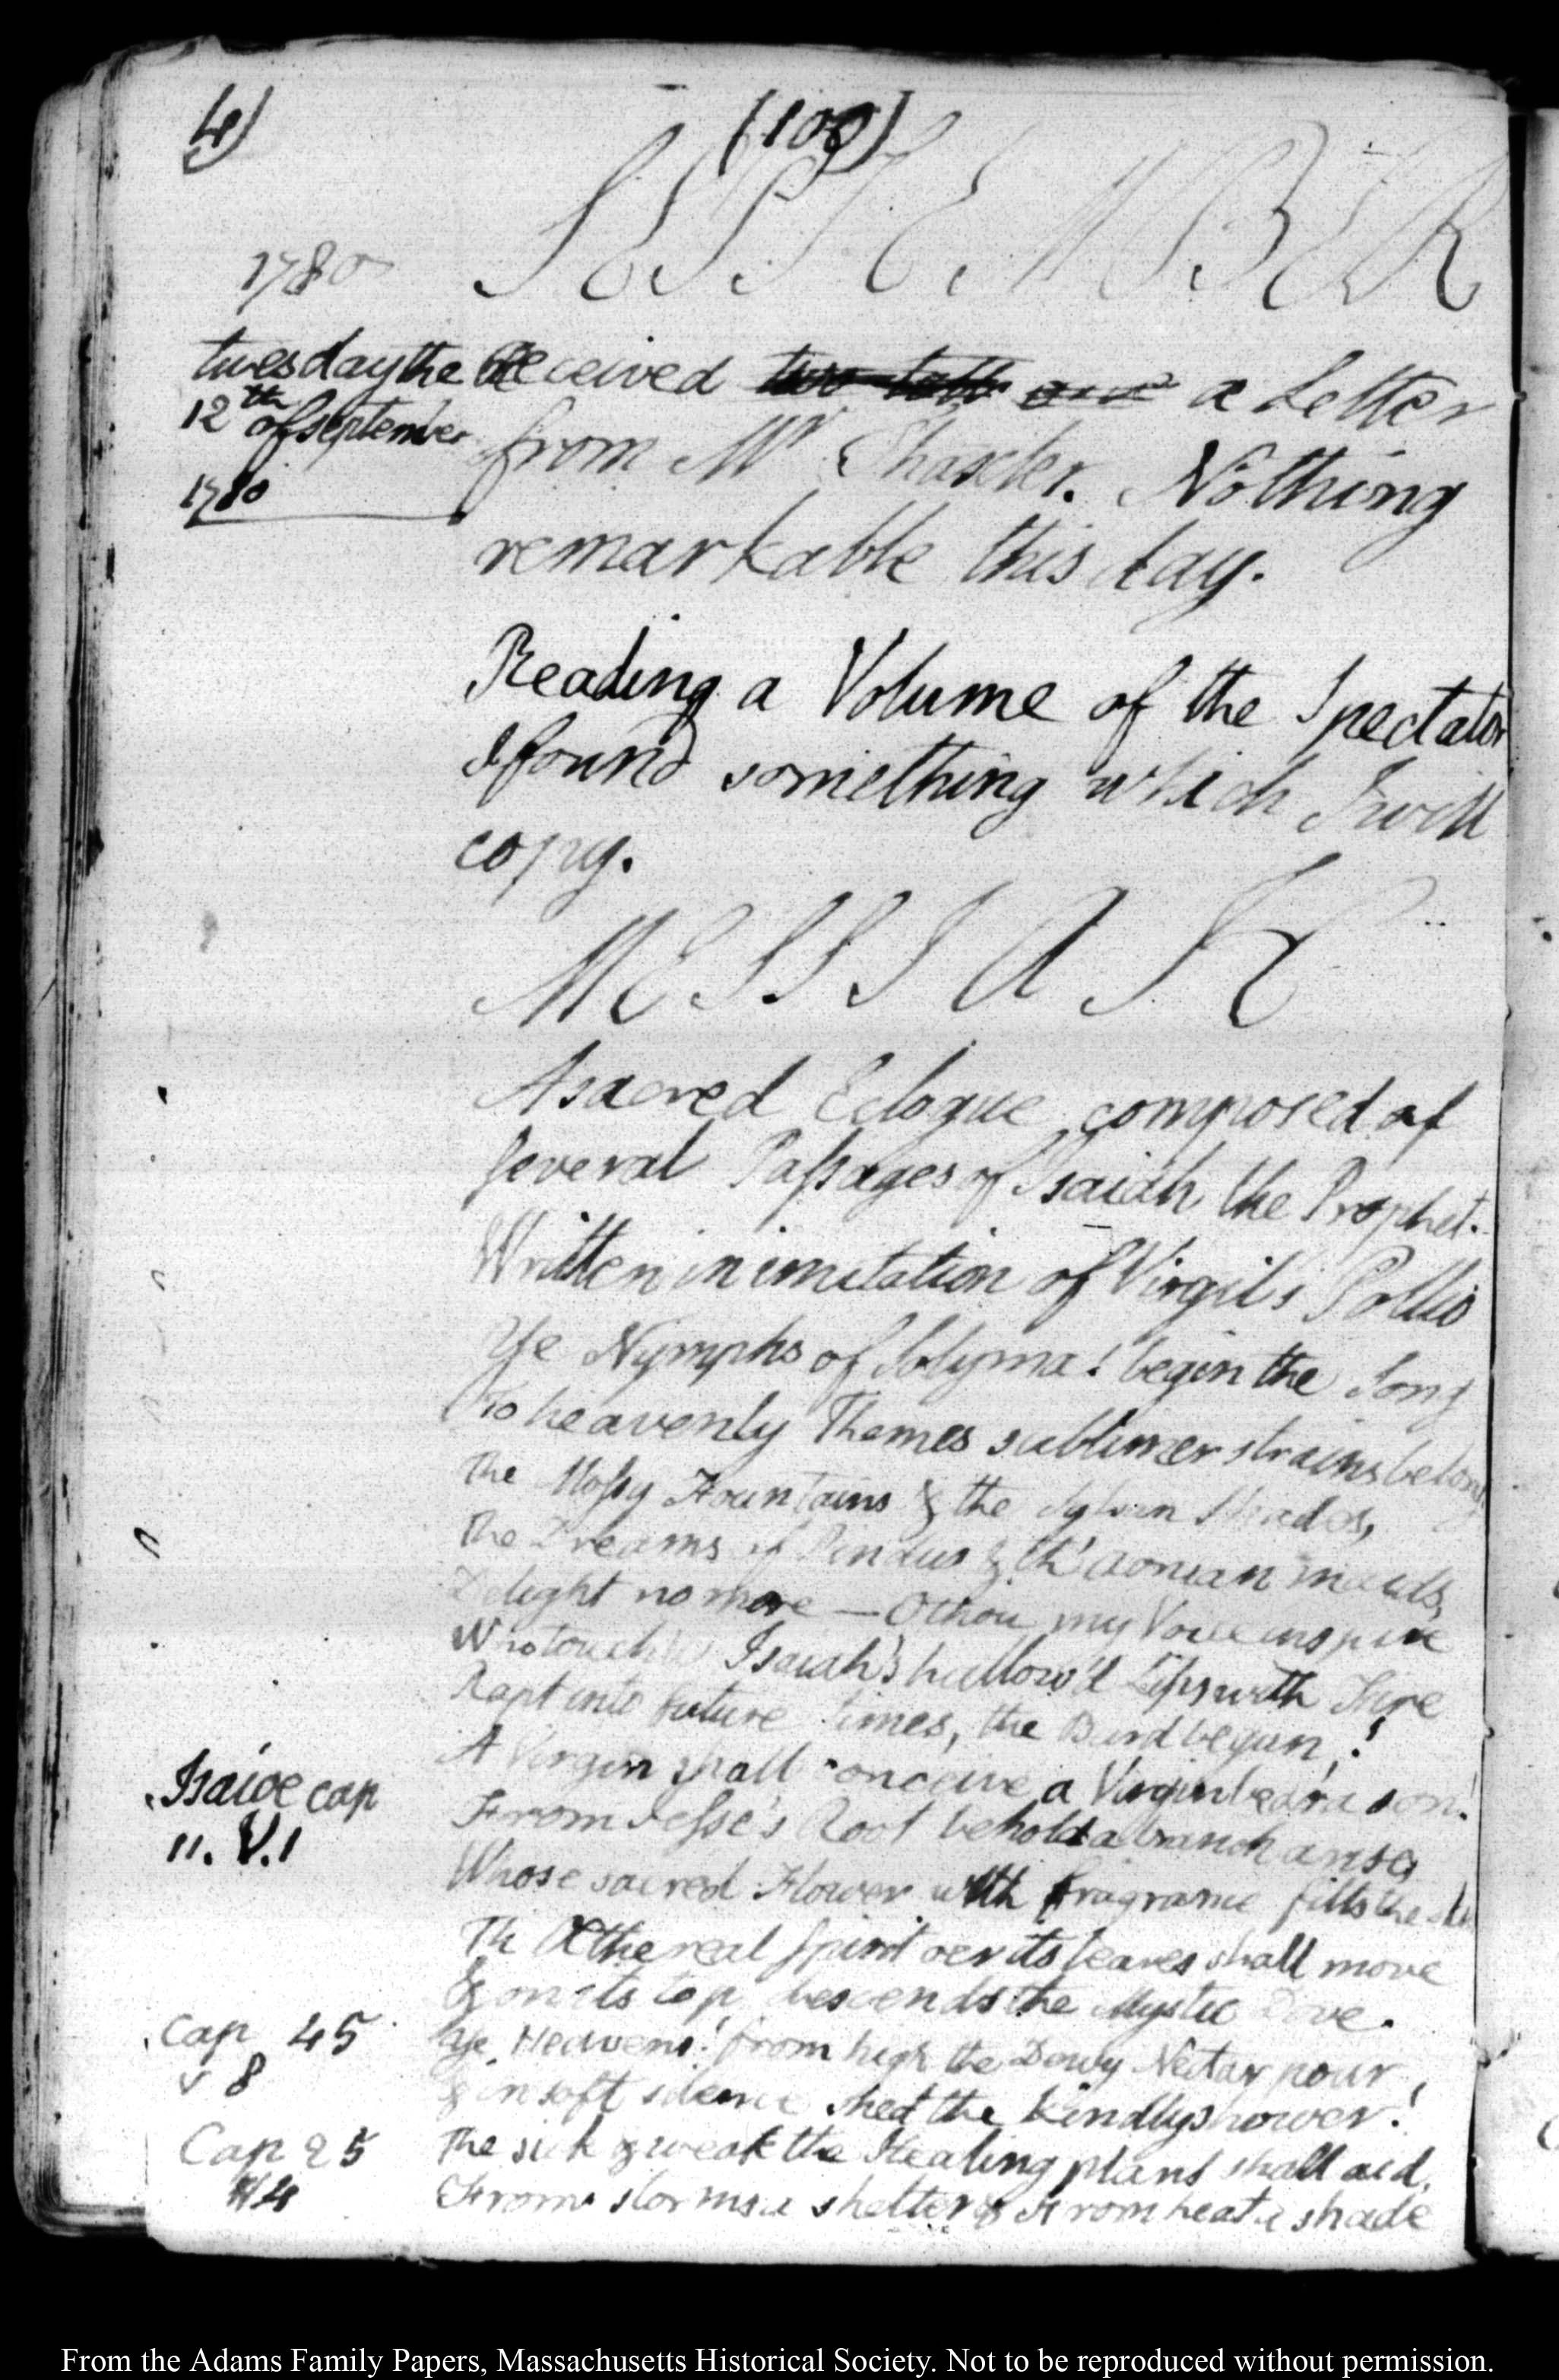 4)
(100)
SEPTEMBER
1780
tuesday the
12th of september
1780
Received a Letter
from Mr Thaxter. Nothing
remarkable this day.
Reading a Volume of the Spectator
I found something which I will
copy.
MESSIAH
A sacred Eclogue composed of
several Passages of Isaiah the Prophet.
Written in imitation of Virgil's Pollio
Ye Nymphs of Solyma! begin the Song
To heavenly Themes sublimer strains belong
The Mossy Fountains & the Sylvan Shades,
The Dreams of Pindus & th' Aonian maids,
Delight no more — O thou my Voice inspire
Who touch'd Isaiah's hallow'd Lips with Fire
Rapt into future times, the Bard begun!
A Virgin shall conceive a Virgin bear a son!
Isaiæ cap
11. V.1
From Jesse's Root behold a branch arise,
Whose sacred Flower with fragrance fills the
Th Æthereal spirit oer its leaves shall move
& on its top descends the Mystic Dove.
Cap 45
v 8
Ye Heavens! from high the Dewy Nectar pour,
& in soft silence shed the kindly shower!
Cap 25
V4
The sick & weak the Healing plant shall aid,
From storms a shelter & From heat a shade
From the Adams Family Papers, Massachusetts Historical Society. Not to be reproduced without permission.